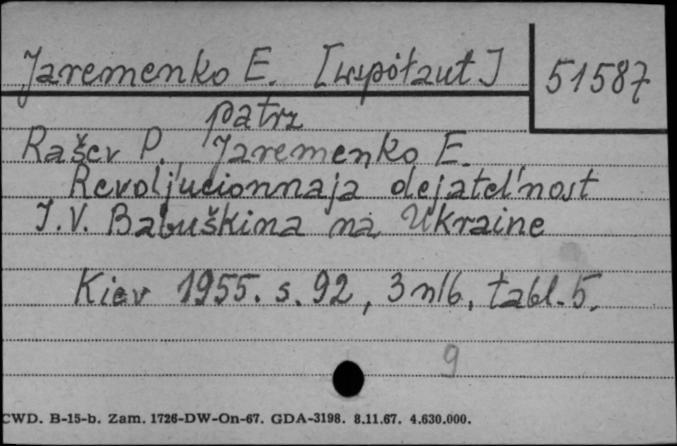 Jaremenko E. [współaut] 51587
patrz
Rašev P., Jaremenko E.
Revoljucionnaja dejatel'nost
I.V. Babuškina na Ukraine
Kiev 1955. s. 92, 3 nlb, tabl. 5.
9
CWD. B-15-b. Zam. 1726-DW-On-67. GDA-3198. 8.11.67. 4.630.000.